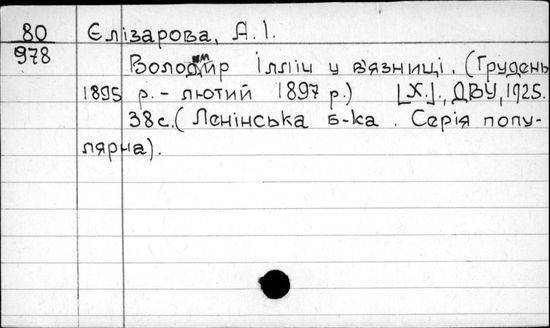 80 Єлізарова, А.І.
978
Володимир Ілліч у вязниці. (Грудень
1895 р. - лютий 1897 р.) [Х.]., ДВУ, 1925.
38 с. (Ленінська б-ка. Серія попу-
лярна).